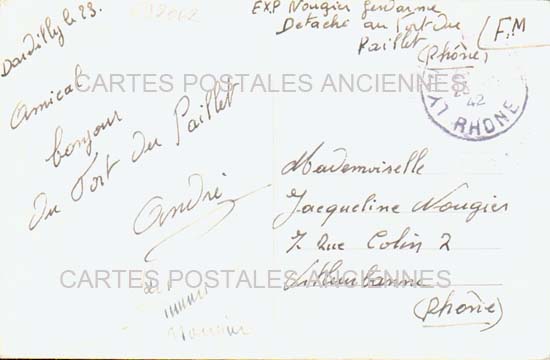 EXP Nougier gendarme
Detaché au Fort du
Paillet
(Rhône)
F.M
Dardilly le 23.
Amical
bonjour
du Fort du Paillet
André
42
RHONE
Mademoiselle
Jacqueline Nougier
7. Rue Colin 2
Villeurbanne
(Rhône)
CARTES POSTALES ANCIENNES
CARTES POSTALES ANCIENNES